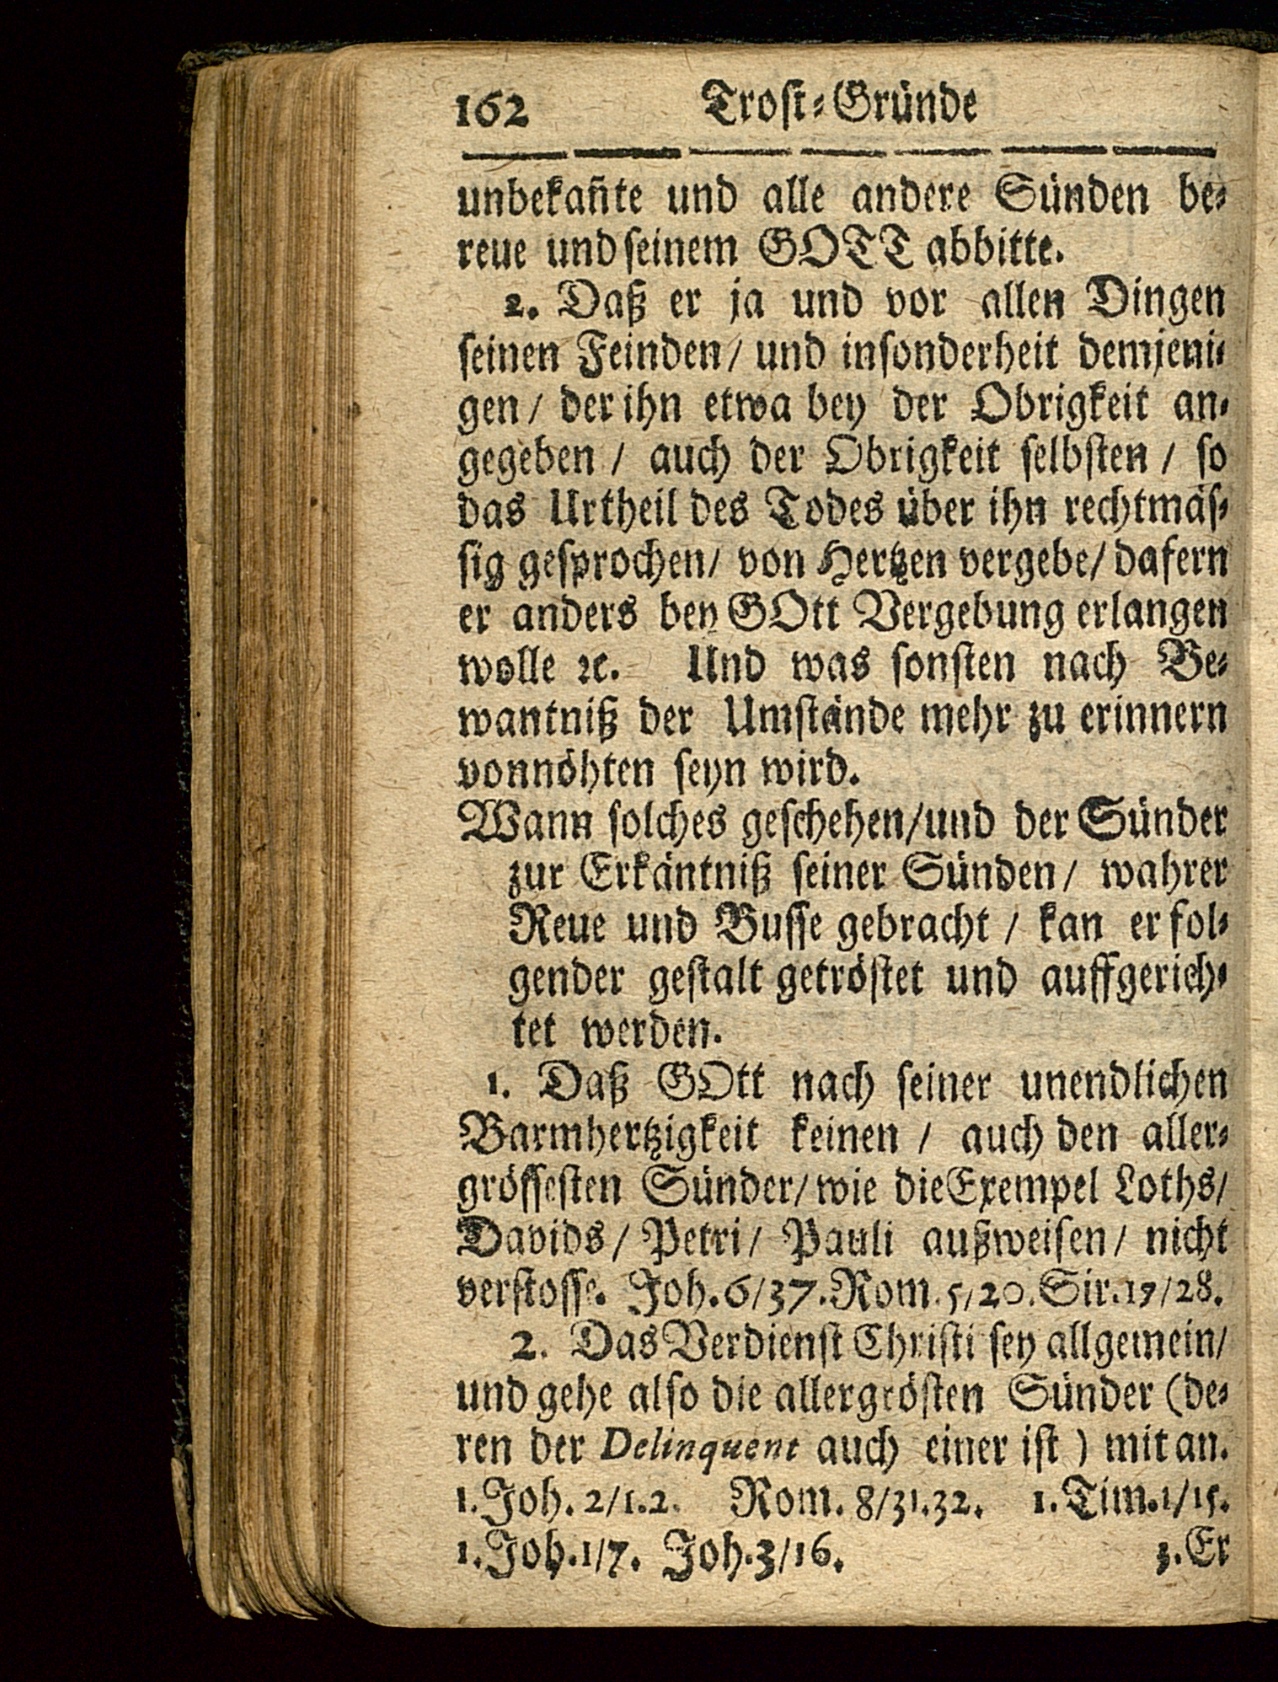 162 Trost⸗Gründe
unbekañte und alle andere Sünden be⸗
reue und seinem GOTT abbitte.
2. Daß er ja und vor allen Dingen
seinen Feinden / und insonderheit demjeni⸗
gen / der ihn etwa bey der Obrigkeit an⸗
gegeben / auch der Obrigkeit selbsten / so
das Urtheil des Todes über ihn rechtmäs⸗
sig gesprochen / von Hertzen vergebe / dafern
er anders bey GOtt Vergebung erlangen
wolle ꝛc. Und was sonsten nach Be⸗
wantniß der Umstände mehr zu erinnern
vonnöhten seyn wird.
Wann solches geschehen / und der Sünder
zur Erkäntniß seiner Sünden / wahrer
Reue und Busse gebracht / kan er fol⸗
gender gestalt getröstet und auffgerich⸗
tet werden.
1. Daß GOtt nach seiner unendlichen
Barmhertzigkeit keinen / auch den aller⸗
grössesten Sünder / wie die Exempel Loths /
Davids / Petri / Pauli außweisen / nicht
verstosse. Joh. 6/37. Rom. 5/20. Sir. 17/28.
2. Das Verdienst Christi sey allgemein /
und gehe also die allergrösten Sünder (de⸗
ren der Delinquent auch einer ist ) mit an.
1. Joh. 2/1.2. Rom. 8/31.32. 1. Tim. 1/15.
1. Joh. 1/7. Joh. 3/16. 3. Er